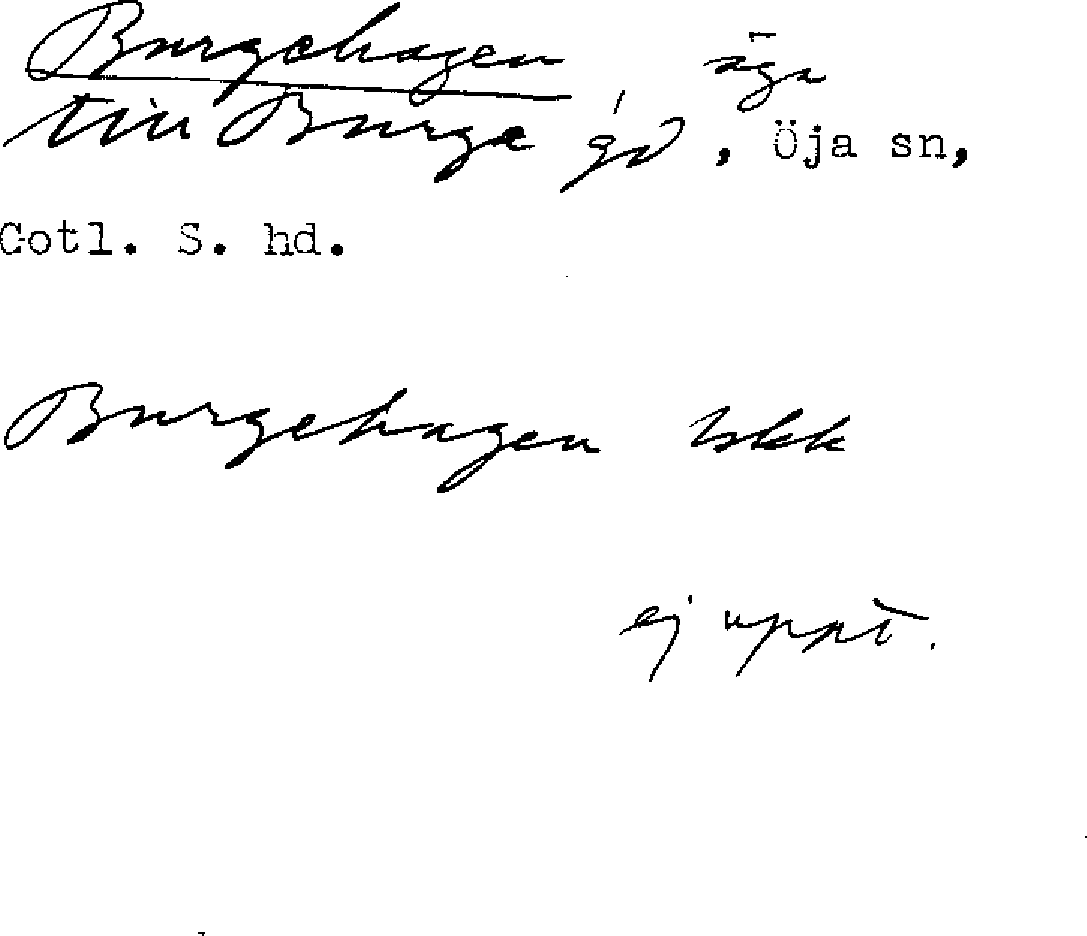 Burgehagen, äga
till Burge gd, Öja sn,
Gotl. S. hd.
Burgehagen
ej uppt.